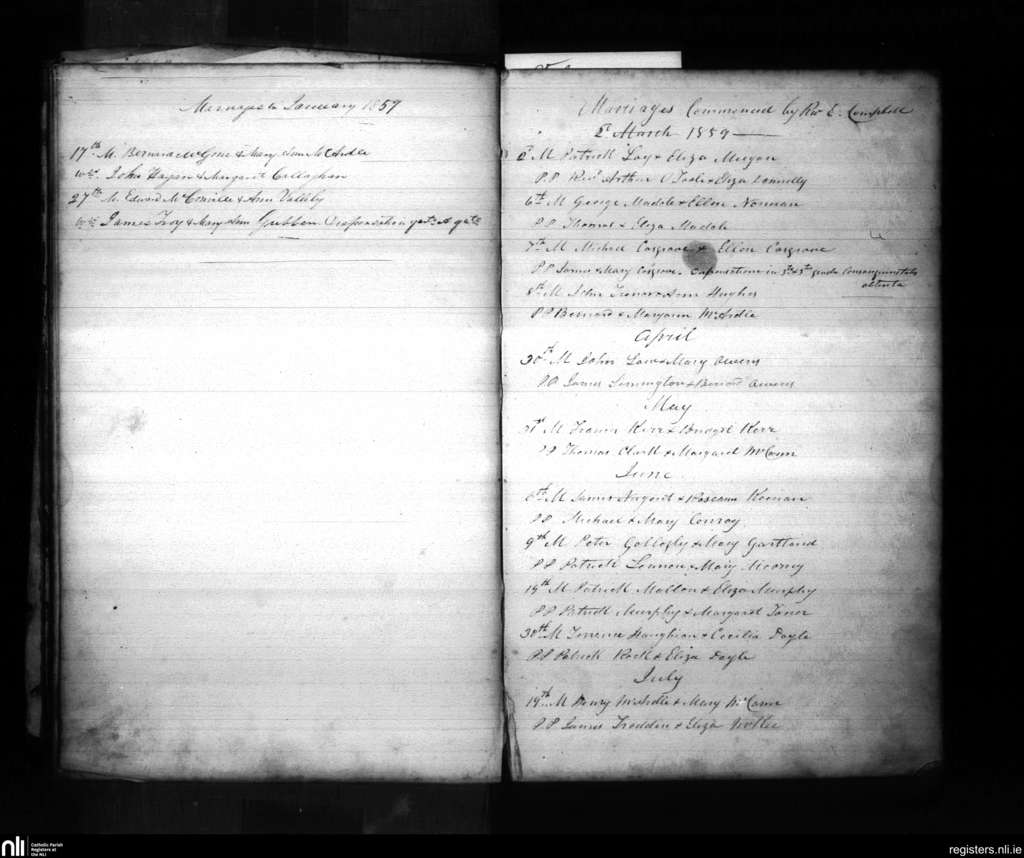 Marriages January 1859
17th M. Bernard McGrne & Mary Ann McArdle
John Hagan & Margaret Callaghan
27th M. Edward McConville & Ann Vallily
James Troy & Mary Ann Gribben Dispensation
Marriages Commenced by Rev E. Campbell
2d March 1859
2d M Patrick Loy & Eliza Meegan
P.P Revd Arthur O Toole & Eliza Connolly
6th M George Madole & Ellen Noonan
P.P Thomas & Eliza Madole
7th M Michael Cosgrove & Ellen Cosgrove
P.P James & Mary Cosgrove. dispensatione in 3th & 3th grado Consanguinitatis
obtenta
8th M John Treanor & Ann Hughes
P.P Bernard & Maryann McArdle
April
30th M John Law & Mary Owens
P.P James Lennington & Bernard Owens
May
31st M Francis Kerr & Bridget Kerr
P.P Thomas Clark & Margaret McCann
June
6th M James Nugent & Roseann Keenan
P.P Michael & Mary Conroy
9th M Peter Gollogly & Mary Gartland
P.P Patrick Lennon & Mary Mooney
19th M Patrick Mallon & Eliza Murphy
P.P Patrick Murphy & Margaret Toner
30th M Terrence Haughian & Cecilia Doyle
P.P Patrick Rock & Eliza Doyle
July
19th M Henry McArdle & Mary McCann
P.P James Fredden & Eliza
nli Catholic Parish
Registers at
the NLI
registers.nli.ie